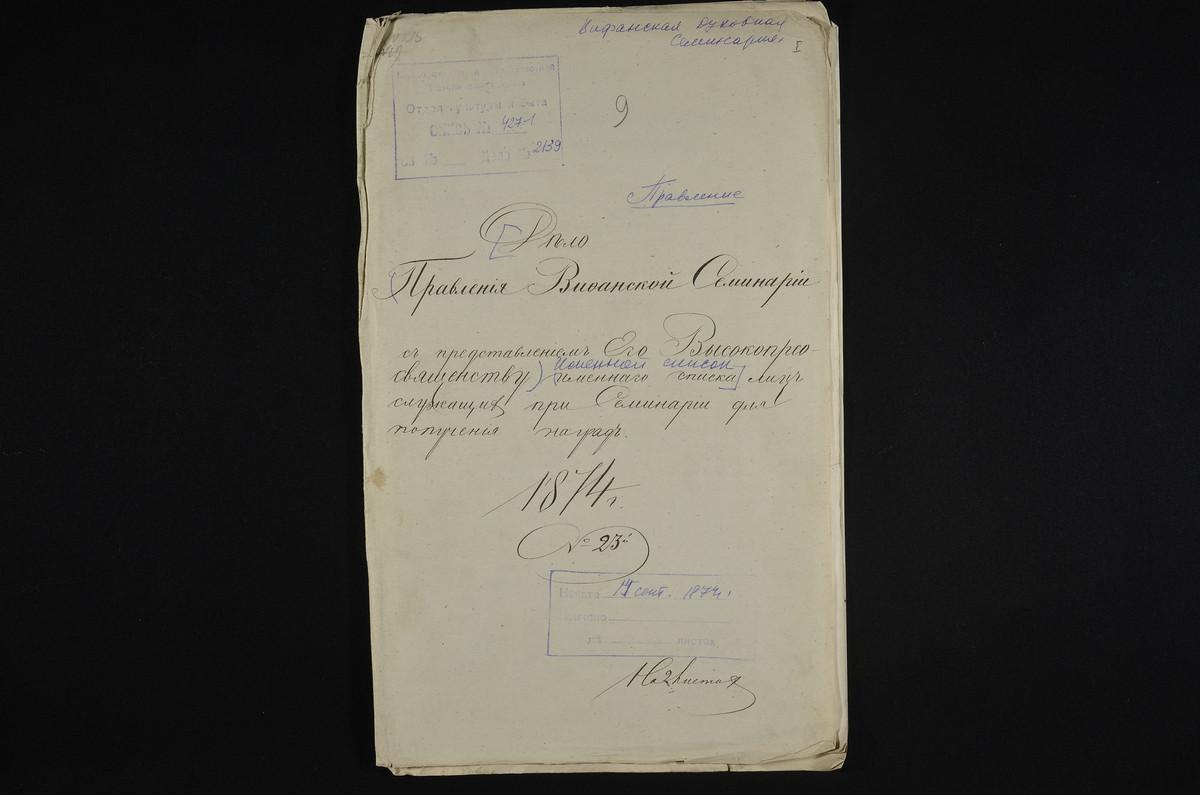 Вифанская Духовная
Семинария
I
9
Отдел культуры и быта
Опись № 427-1
Дело № 2139
Правление
Дѣло
Правленія Виѳанской Семинаріи
съ представленіемъ Его Высокопрео-
священству именнаго списка лицъ
Именной список
служащихъ при Семинаріи для
полученія наградъ.
1874 г.
№ 23й
Начато 14 сент. 1874 г.
листов
На 2 листах